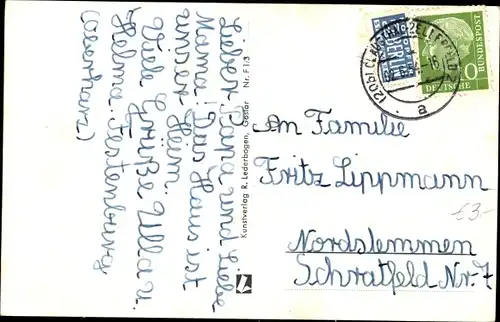 Lieber Papa und Liebe
Mama! Das Haus ist
unser Heim.
Viele Grüße Ulla u.
Helma. Festenburg
(Oberharz)
Kunstverlag R. Lederbogen, Goslar Nr. F 1/3
(20b) CLAUSTHAL-ZELLERFELD
a
DEUTSCHE
BUNDESPOST
10
An Familie
Fritz Lippmann
£3-
Nordstemmen
Schratfeld Nr. 7